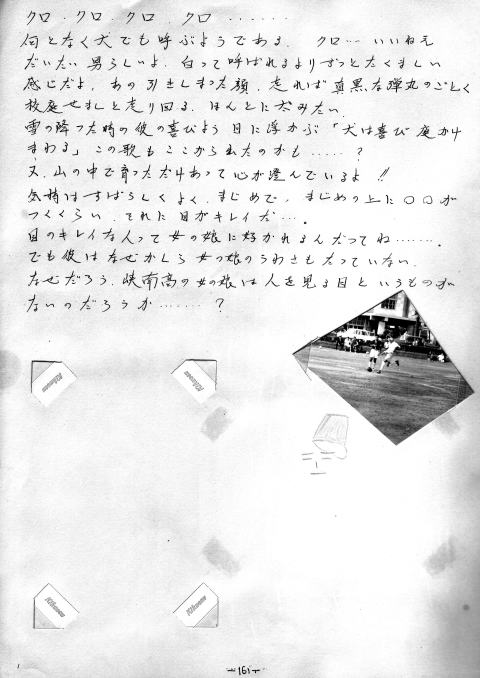 クロ．クロ．クロ．クロ．．．．．．．
何となく犬でも呼ぶようである． クロ…いいねえ
だいたい男らしいよ．白って呼ばれるよりずっとたくましい
感じだよ．あの引きしまった顔．走れば真黒な弾丸のごとく
校庭せましと走り回る．ほんとに犬みたい．
雪の降った時の彼の喜びよう目に浮かぶ「犬は喜び庭かけ
まわる」この歌もここから出たのかも．．．．．？
又．山の中で育っただけあって心が澄んでいるよ!!
気持はすばらしくよく．まじめで，まじめの上に〇〇が
つくくらい．それに目がキレイだ…．
目のキレイな人って女の娘に好かれるんだってね……．
でも彼はなぜかしら女の娘のうわさもたっていない．
なぜだろう．峡南高の女の娘は人を見る目というものが
ないのだろうか……．？
-161-